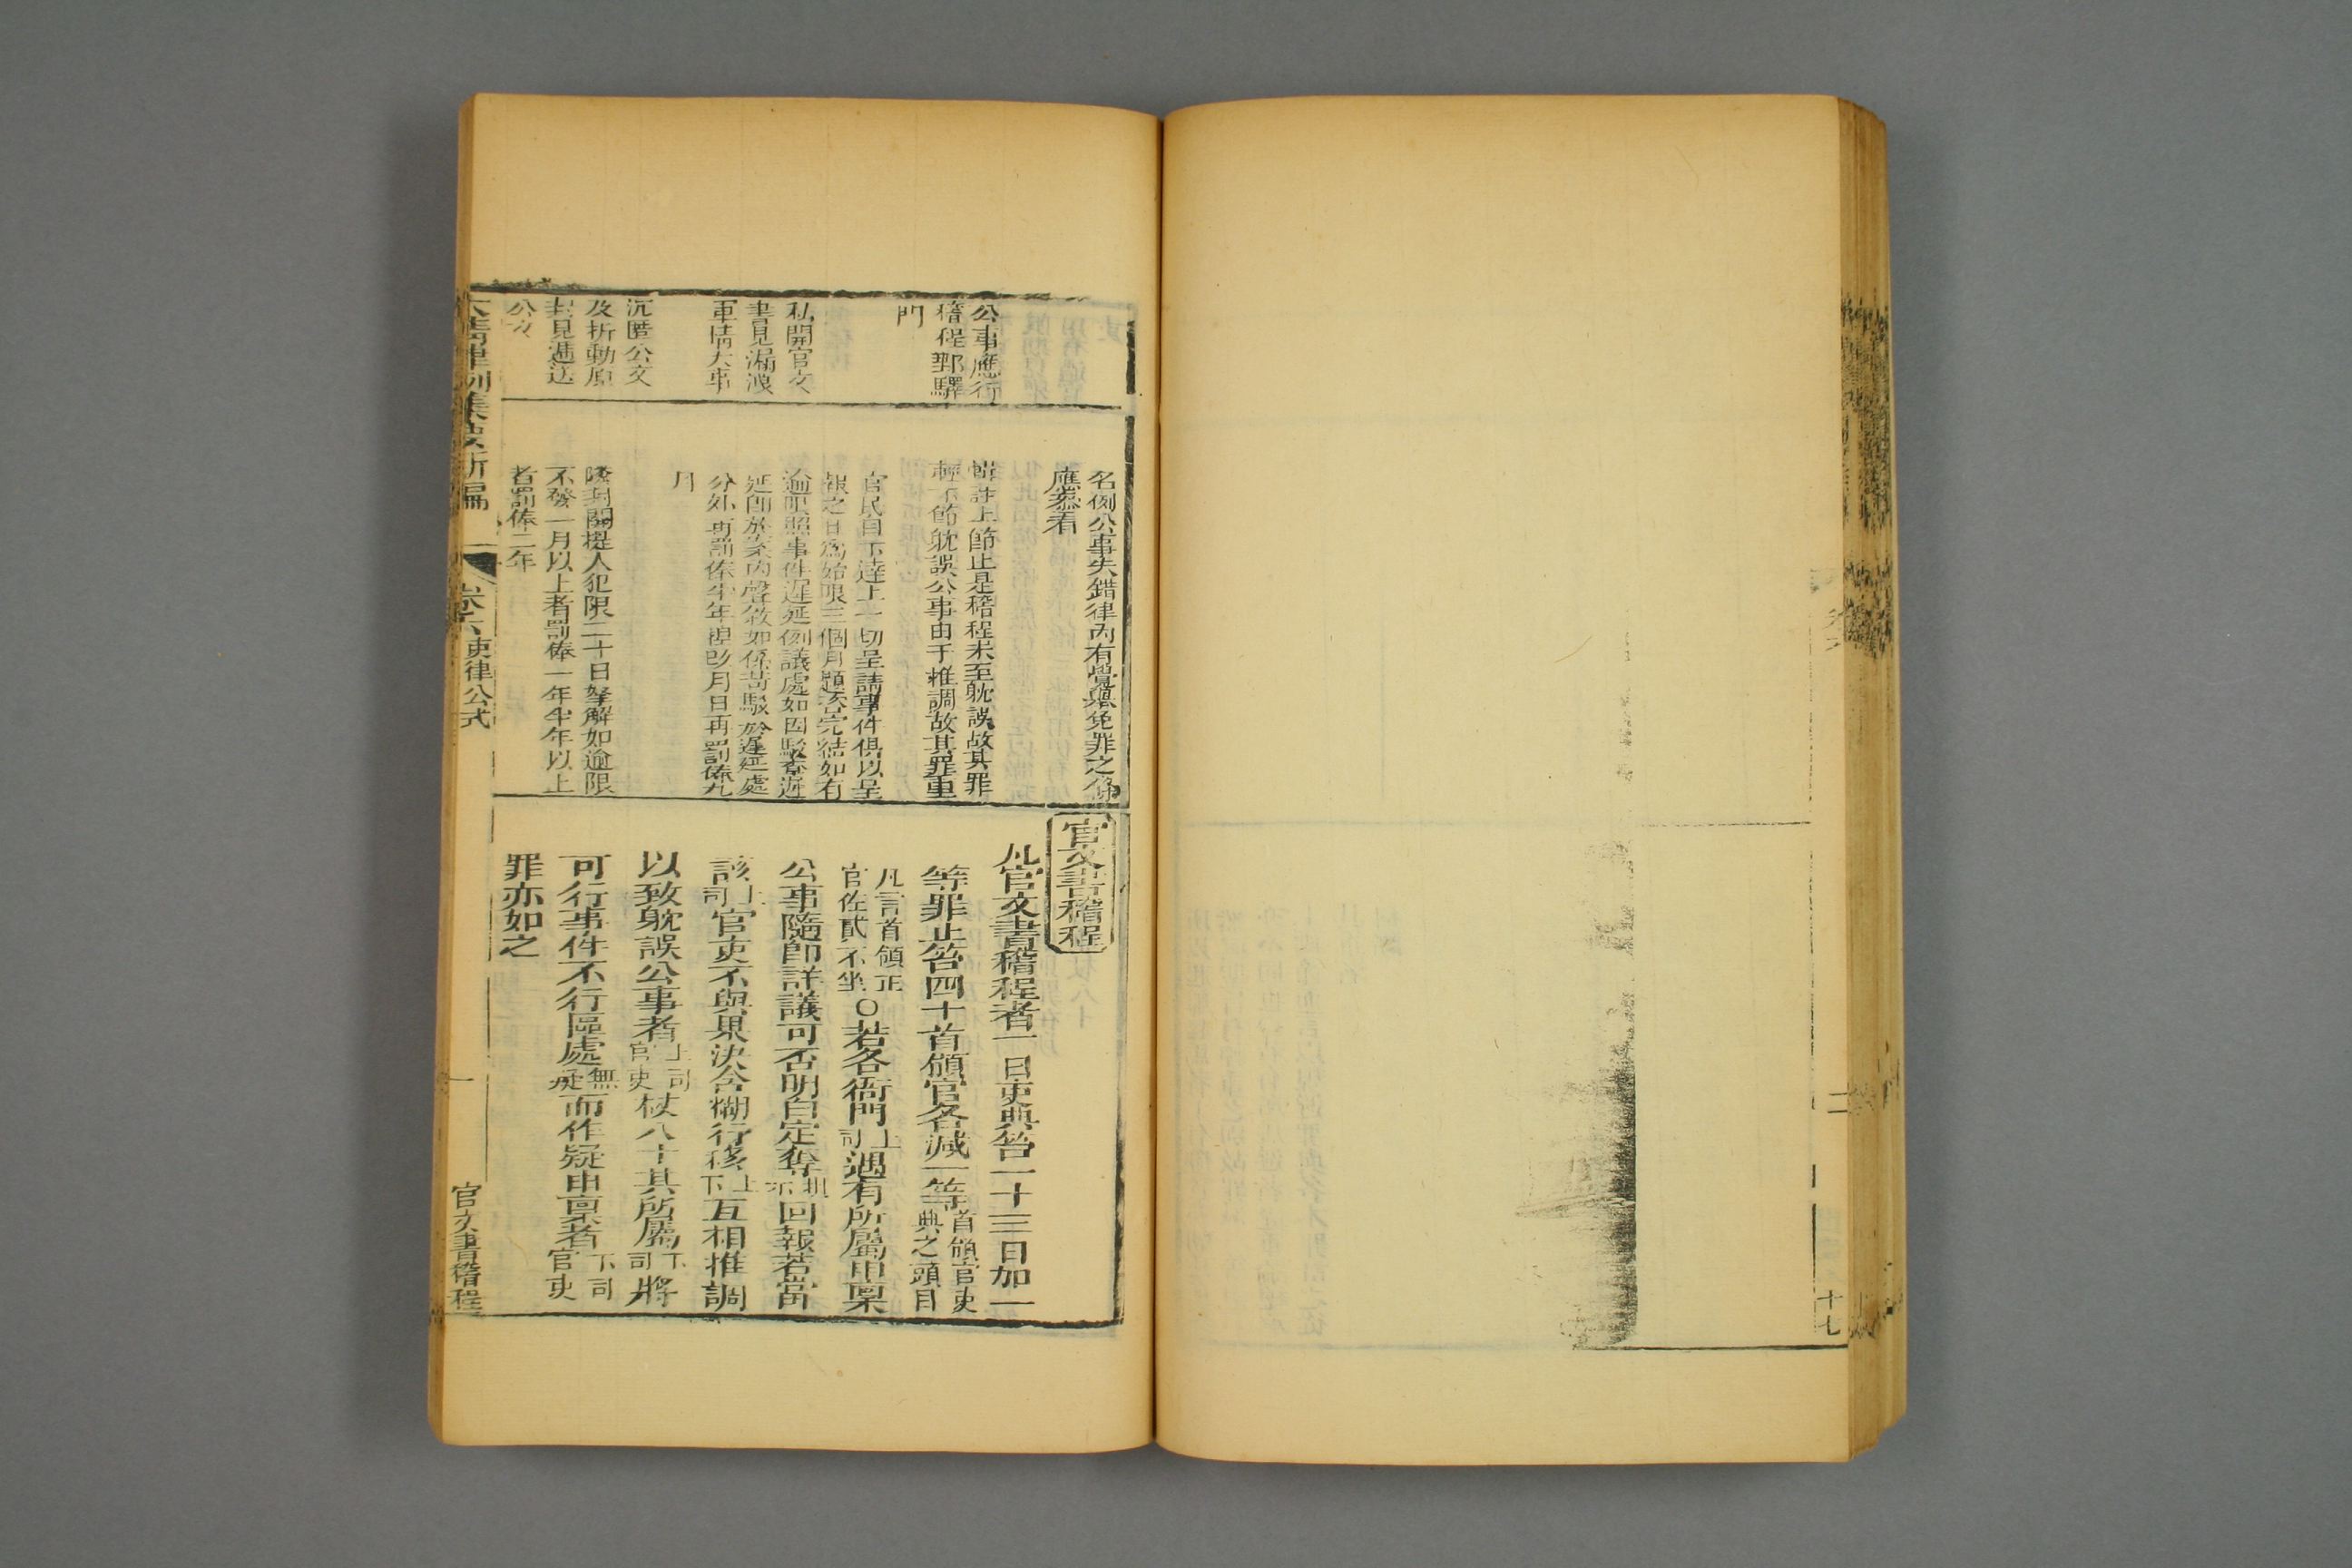 十七
公事應行
稽程郵驛
門
私開官文
書見漏洩
軍情大事
沉匿公文
及折動原
封見遞送
公文
名例公事失錯律內有覺舉免罪之條
應叅看
輯註上節止是稽程未至躭誤故其罪
輕下節躭誤公事由于推調故其罪重
官民自下達上一切呈請事件俱以呈
報之日為始限三個月題咨完結如有
逾限照事件遲延例議處如因駁查遲
延卽於案內聲敘如係苛駁於遲延處
分外再罰俸半年倒改月日再罰俸九
月
隣封關提人犯限二十日拏解如逾限
不發一月以上者罰俸一年半年以上
者罰俸二年
官文書稽程
凡官文書稽程者一日吏典笞一十三日加一
等罪止笞四十首領官各減一等首領官吏典之頭目
凡言首領正官佐貳不坐○若各衙門上司遇有所屬申稟
公事隨卽詳議可否明白定奪批示回報若當
該上司官吏不與果決含糊行移上下互相推調
以致躭誤公事者上司官吏杖八十其所屬下司將
可行事件不行區處無疑而作疑申稟者下司官吏
罪亦如之
大淸律例集要新編
卷六吏律公式
一
官文書稽程